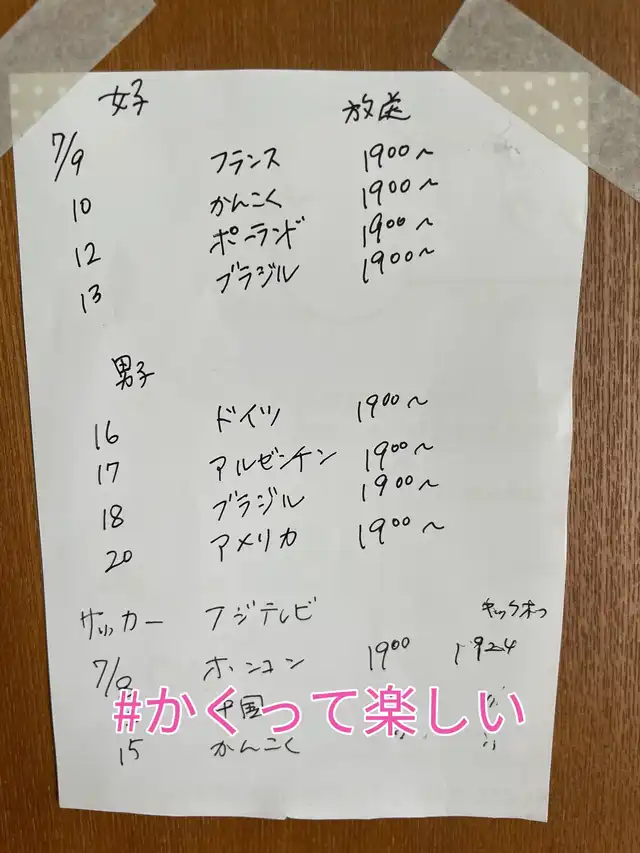 女子 放送
7/9 フランス 1900~
10 かんこく 1900~
12 ポーランド 1900~
13 ブラジル 1900~
男子
16 ドイツ 1900~
17 アルゼンチン 1900~
18 ブラジル 1900~
20 アメリカ 1900~
サッカー フジテレビ キックオフ
ホンコン 1900 1924
#かくって楽しい
中国
15 かんこく